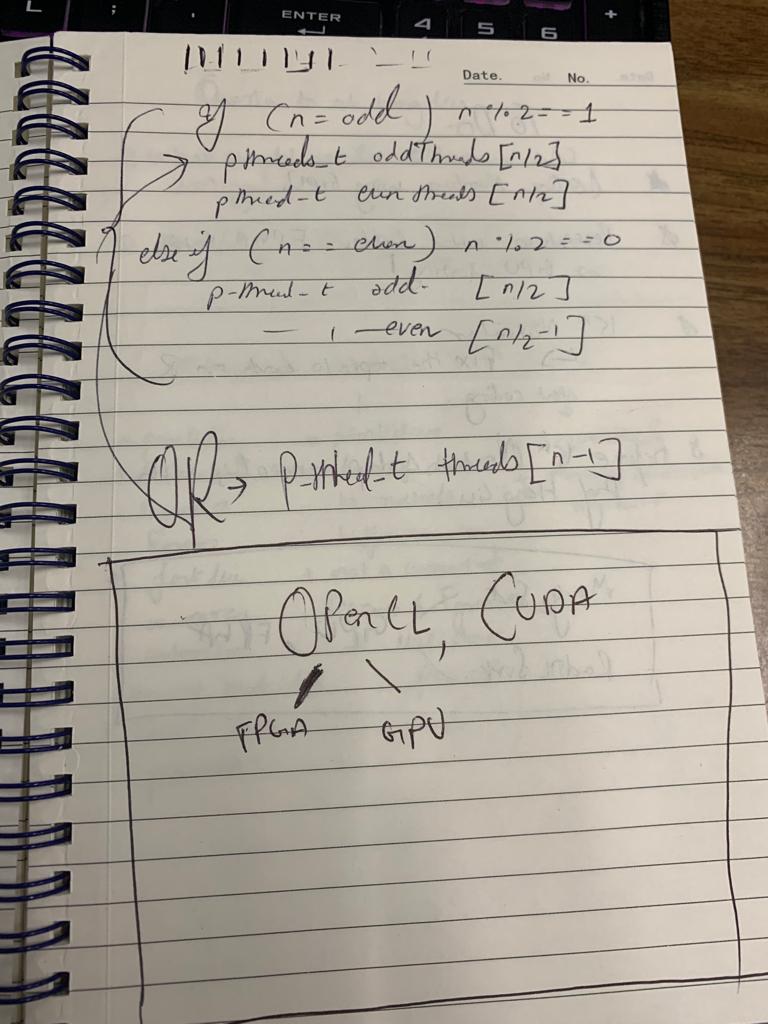 ENTER
L ; . 4 5 6 +
Date. No.
if (n = odd) n % 2 == 1
pthreads_t oddThreads [n/2]
pthread_t even threads [n/2]
else if (n == even) n % 2 == 0
p-thread_t odd- [n/2]
— 1 — even [n/2-1]
OR → P_thread_t threads [n-1]
OpenCL, CUDA
FPGA GPU